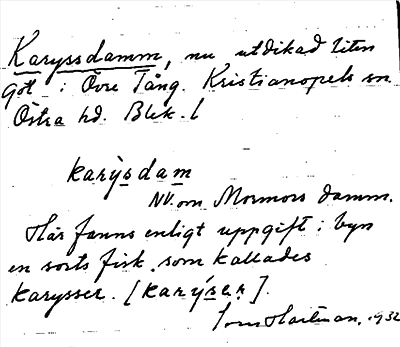 Karyssdamm, nu utdikad liten
göl i Övre Tång. Kristianopels sn
Östra hd. Blek. l
karỳsdam
NV. om Mormors damm.
Här fanns enligt uppgift i byn
en sorts fisk som kallades
karysser. [karýser].
Hartman, 1932